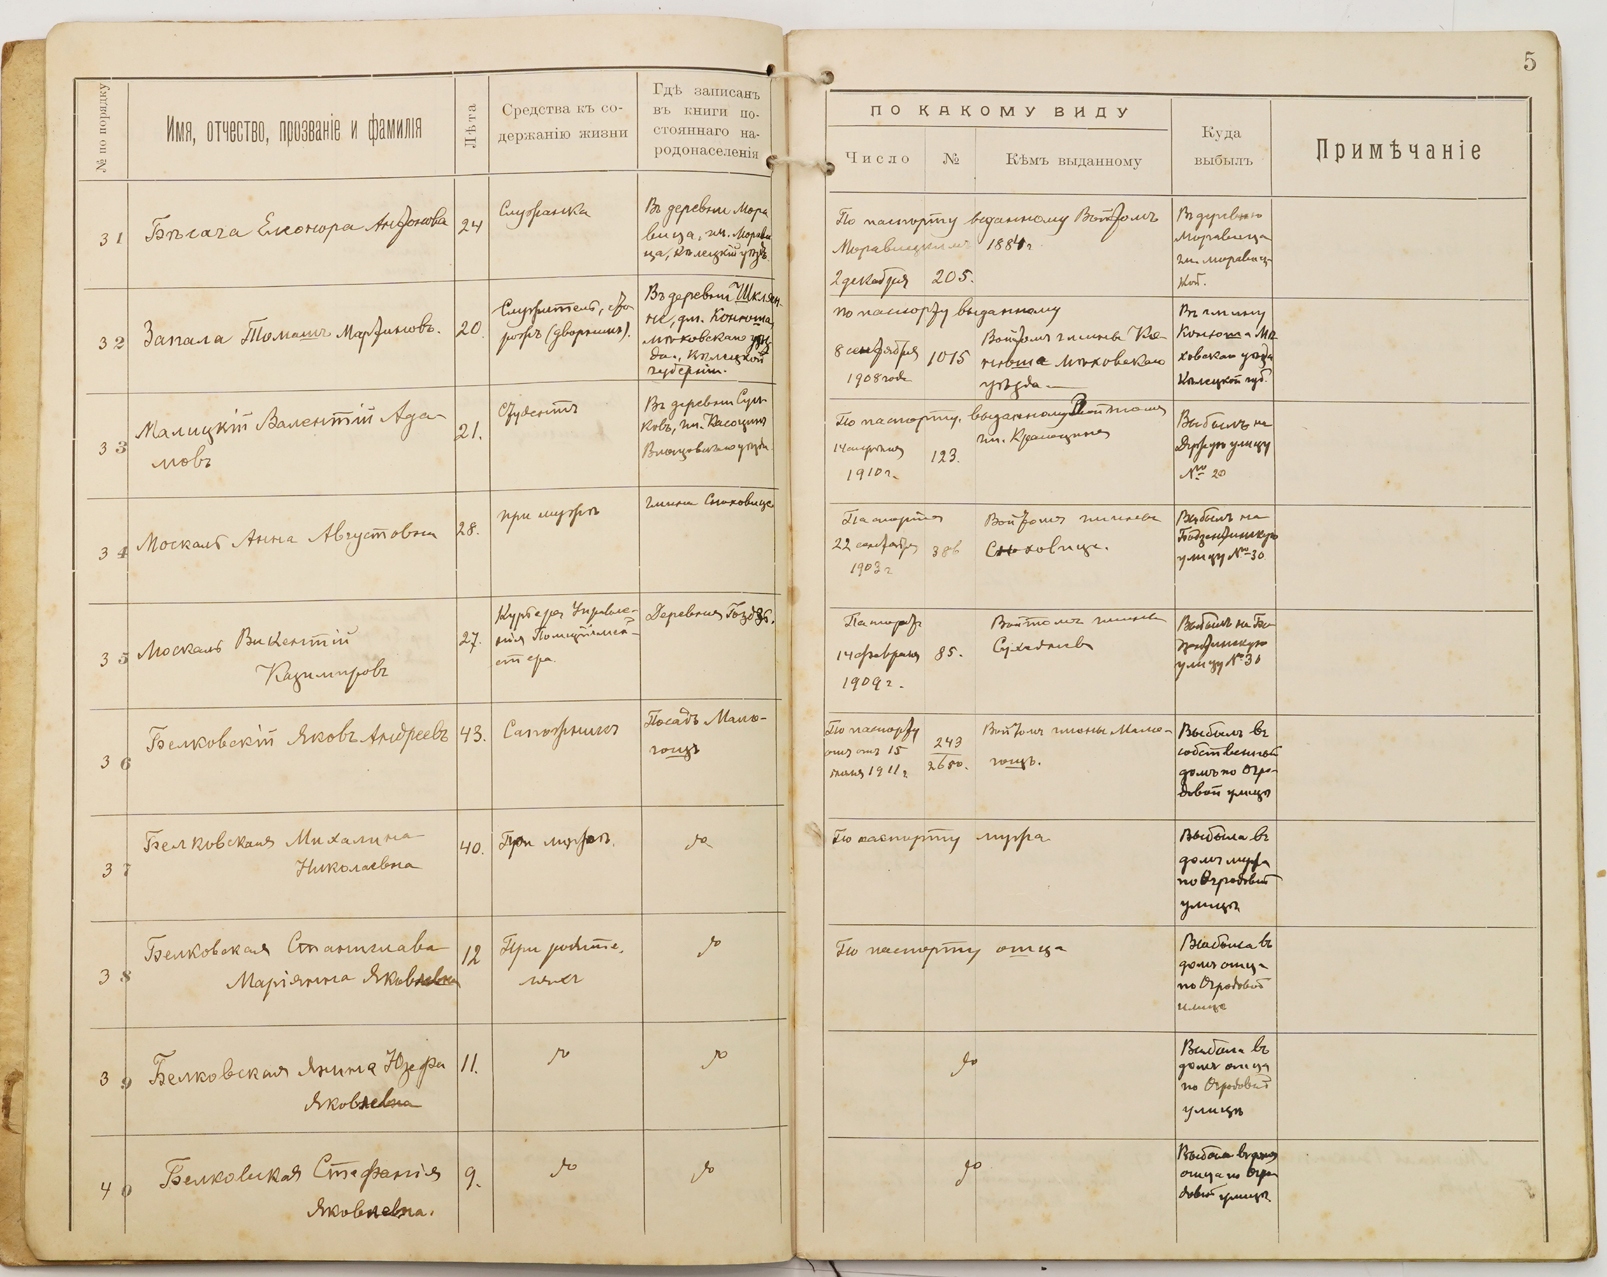 5
№ по порядку
Имя, отчество, прозваніе и фамилія
Лѣта
Средства къ со-
держанію жизни
Гдѣ записанъ
въ книги по-
стояннаго на-
родонаселенія
ПО КАКОМУ ВИДУ
Число
№
Кѣмъ выданному
Куда
выбылъ
Примѣчаніе
31
Елеонора Антонова
24
Служанка
Въ деревни Мора
вица, гм. Морави
ца, Кѣлецкій уѣздъ
По паспорту выданному Войтомъ
Моравицкимъ 1884г
2 декабря 205.
Въ деревню
Моравица
гм. Моравиц-
кой.
32
Запала Томашъ Мартиновъ.
20
Служитель, сто
рожъ (дворникъ).
Въ деревни Шклян.
не, гм. Конюша,
Мѣховскаго уѣз
да, Кѣлецкой
губерніи.
по паспорту выданному
8 сентября
1908 года
1015
Войтомъ гмины Ко
нюша Мѣховскаго
уѣзда
Въ гмину
Конюша Мѣ
ховскаго уѣзда
Кѣлецкой губ.
33
Малицкій Валентій Ада-
мовъ
21.
Студентъ
Въ деревни
ковъ, гм.
Влощовскаго уѣзда
По паспорту, выданному Войтомъ
гм. Красоцинъ
14 апрѣля
1910 г.
123.
Выбылъ на
улицу
№ 20
34
Москаль Анна Августовна
28.
при мужѣ
гмина Снховице
Паспортъ
22 сентября
1903 г
386
Войтомъ гмины
Снховице.
Выбылъ на
Бодзентинскую
улицу № 30
35
Москаль Викентій
Казимировъ
27.
Курьеръ Управле-
нія Полиціймей-
стера
Деревня Гоздъ.
Паспортъ
14 февраля
1909 г.
85.
Войтомъ гмины
Сухеднёвъ
Выбылъ на Бо-
дзентинскую
улицу № 30
36
Белковскій Яковъ Андреевъ
43.
Сапожникъ
Посадъ Мало-
гощъ
По паспорту
отъ 15
1911 г
243
2680.
Войтомъ гмины Мало-
гощъ.
Выбылъ въ
собственный
домъ по Огро-
довой улицѣ
37
Белковская Михалина
Николаевна
40.
При мужѣ.
до
По паспорту мужа
Выбыла въ
домъ мужа
по Огродовой
улицѣ
38
Белковская Станислава
Маріянна Яковлевна
12
При родите-
ляхъ
до
По паспорту отца
Выбыла въ
домъ отца
по Огродовой
улице
39
Белковская Янина Юзефа
Яковлевна
11.
до
до
до
Выбыла въ
домъ отца
по Огродовой
улицѣ
40
Белковская Стефанія
Яковлевна.
9.
до
до
до
Выбыла въ домъ
отца по Огро
довой улицѣ